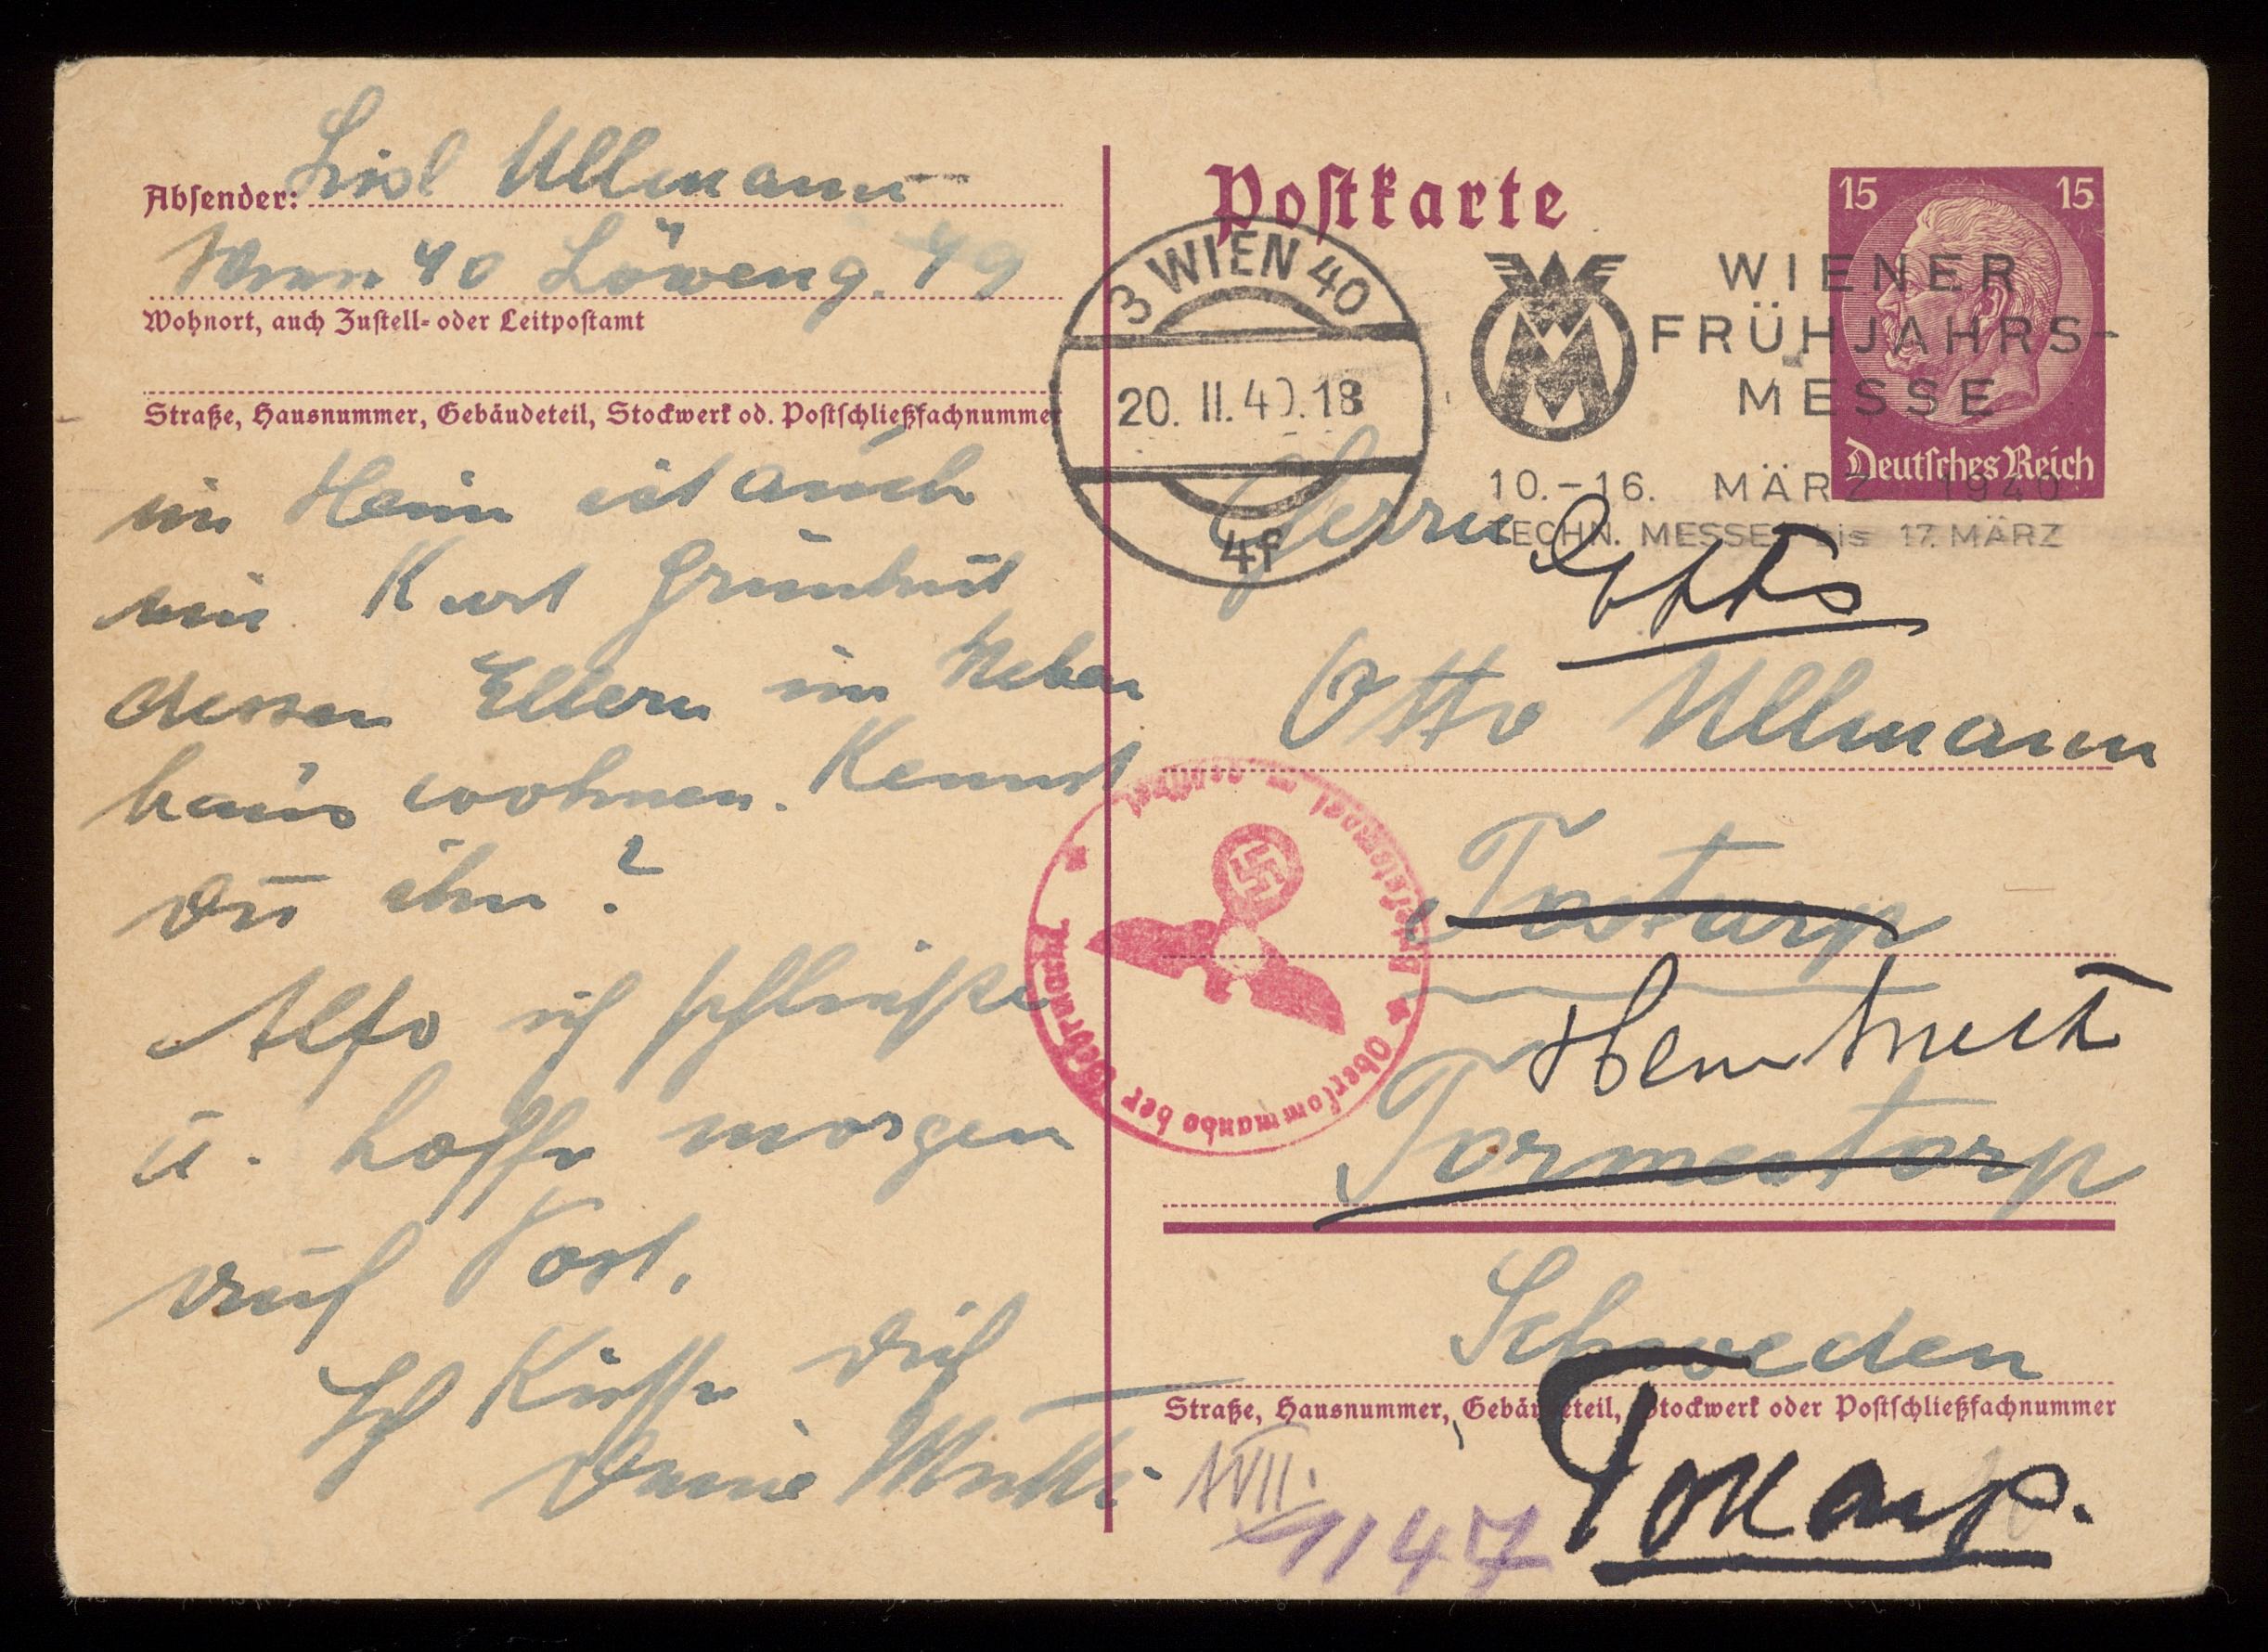 Absender: Lisl Ullmann
Wien 40 Löweng. 49
Wohnort, auch Zustell- oder Leitpostamt
Straße, Hausnummer, Gebäudeteil, Stockwerk od. Postschließfachnummer
im Heim ist auch
ein Kurt Grünhut
dessen Eltern im Neben
haus wohnen. Kennst
Du ihn?
Also ich schließe
u. hoffe morgen
auf Post.
Ich Küsse Dich
Deine Mutti
Postkarte
15 15
Deutsches Reich
3 WIEN 40
20. II. 40. 18
4f
WIENER
FRÜHJAHRS-
MESSE
10.-16. MÄRZ 1940
TECHN. MESSE bis 17. MÄRZ
Herrn
Otto Ullmann
Tostarp
Tormestorp
Schweden
Straße, Hausnummer, Gebäudeteil, Stockwerk oder Postschließfachnummer
Oberkommando der Wehrmacht
1147